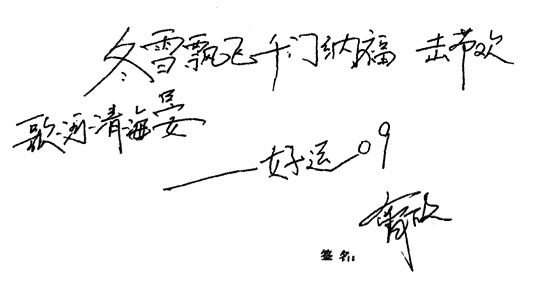 冬雪飘飞千门纳福 击节欢
歌河清海晏
——好运09
签名: